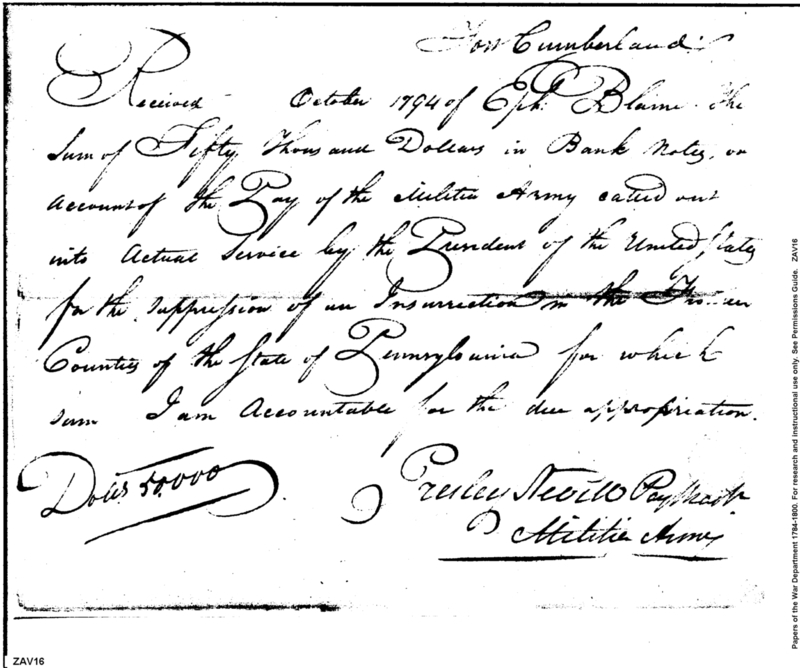 Fort Cumberland
Received October 1794 of Eph. Blaine the
Sum of Fifty Thousand Dollars in Bank Notes, on
Account of the Pay of the Militia Army called out
into Actual Service by the President of the United States
for the suppression of an Insurrection in the
Counties of the State of Pennsylvania for which
sum I am Accountable for the due appropriation.
Dolls 50.000
Presley Nevill Paymastr
Militia Army
Papers of the War Department 1784-1800. For research and instructional use only. See Permissions Guide. ZAV16
ZAV16